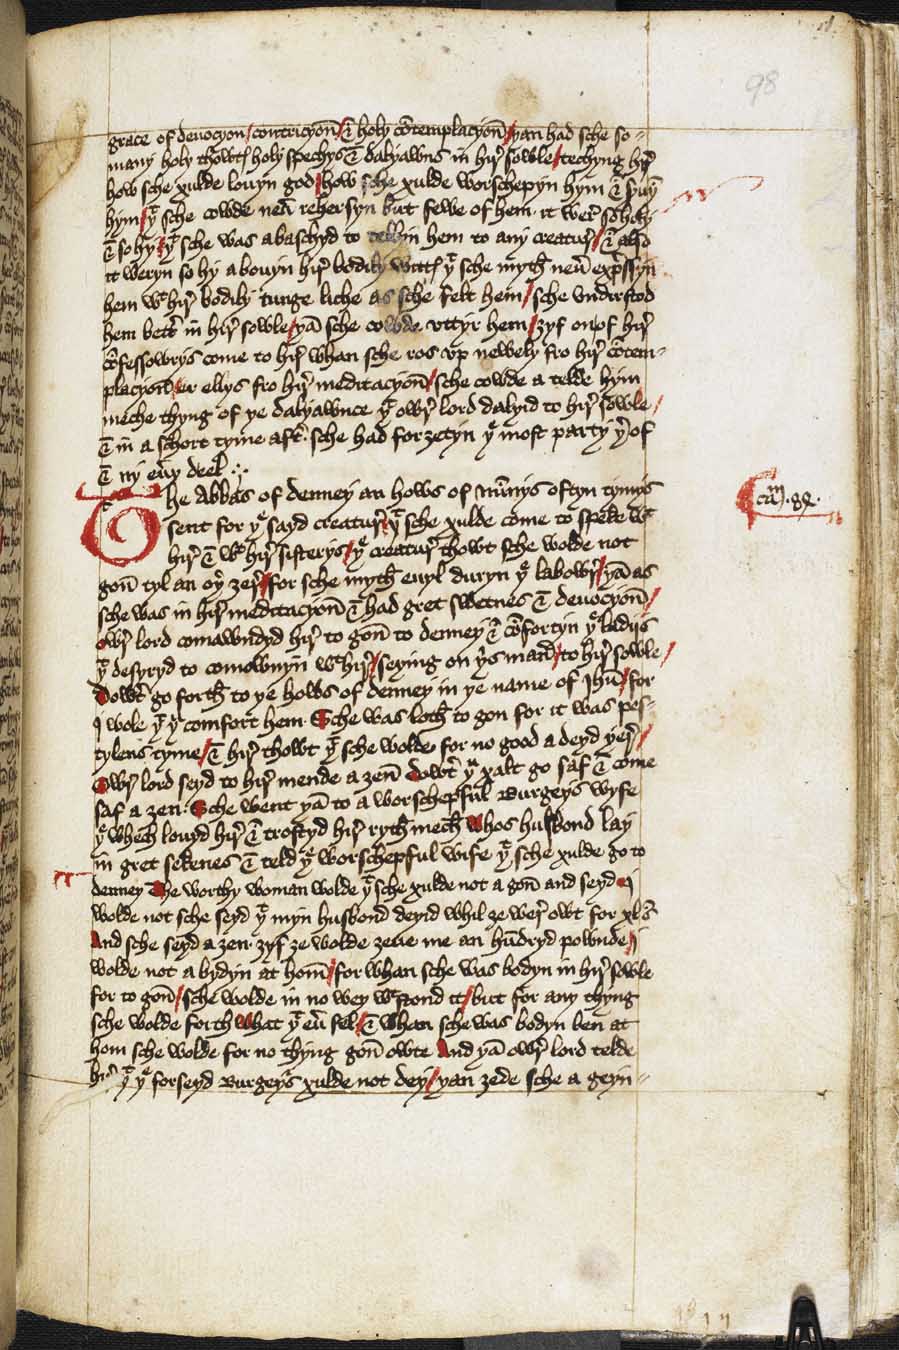 98
grace of deuocyon / contricyoñ / & holy cõtemplacyoñ / yan had sche so-
many holy thowtꝭ holy spechys & dalyawns in hir sowle / techyng hir
how sche xulde louyn god / how sche xulde worschepyn hym & seruyn
hym / yᵗ sche cowde neuͬ rehersyn but fewe of hem. it wer so holy
& so hy / yᵗ sche was abaschyd to tellyn hem to any creatur / & also
it weryn so hy abouyn hir bodily wittꝭ yᵗ sche myth neuͬ expressyn
hem wᵗ hir bodily tunge liche as sche felt hem / sche undirstod
hem bettͬ in hir sowle / yã sche cowde uttyr hem / ȝyf on of hir
cõfessowrys come to hir whan sche ros vp newely fro hir cõtem-
placyoñ er ellys fro hir meditacyoñ / sche cowde a telde hym
meche thyng of ye dalyawnce yᵗ owr lord dalyid to hir sowle /
& in a schort tyme aftͬ. sche had forȝetyn yᵉ most party yͬof
& ny euͬy deel ⁘
The Abbas of denney an hows of nũnys oftyn tymys
cam̃. 84.
sent for yᵉ sayd creatur / yᵗ sche xulde come to speke wᵗ
hir & wᵗ hir sisterys / yᵉ creatur thowt sche wolde not
goñ tyl an oyͬ ȝer / for sche myth euyl duryn yᵉ labowr / yã as
sche was in hir meditacyoñ & had gret swetnes & deuocyoñ /
owr lord comawndyd hir to goñ to denney & cõfortyn yᵉ ladijs
yᵗ desyryd to comownyn wᵗ hir / seying on yͥs maner / to hir sowle /
Dowtͬ go forth to ye hows of denney in ye name of Jhũ / for
J wole yᵗ yᵘ comfort hem. Sche was loth to gon for it was pes-
tylens tyme / & hir thowt yᵗ sche wolde for no good a deyd yer /
Owr lord seyd to hir mende a ȝeñ Dowtͬ yᵘ xalt go saf & come
saf a ȝen. Sche went yã to a worschepful Burgeys wyfe
yᵉ whech louyd hir & trostyd hir ryth mech whos husbond lay
in gret sekenes & teld yᵉ worschepful wife yᵗ sche xulde go to
denney The worthy woman wolde yᵗ sche xulde not a goñ and seyd J
wolde not sche seyd yᵗ myn husbond deyid whil ȝe wer owt for xl s̃
And sche seyd a ȝen. ȝyf ȝe wolde ȝeue me an hũdryd pownde / J
wolde not abydyn at hom̃ / for whan sche was bodyn in hir sowle
for to goñ / sche wolde in no wey wᵗstond it / but for any thyng
sche wolde forth what yᵗ euͬ fel / & whan sche was bodyn ben at
hom sche wolde for no thyng goñ owte And yã owr lord telde
hir yᵗ yᵉ forseyd Burgeys xulde not dey / yan ȝede sche a geyn-